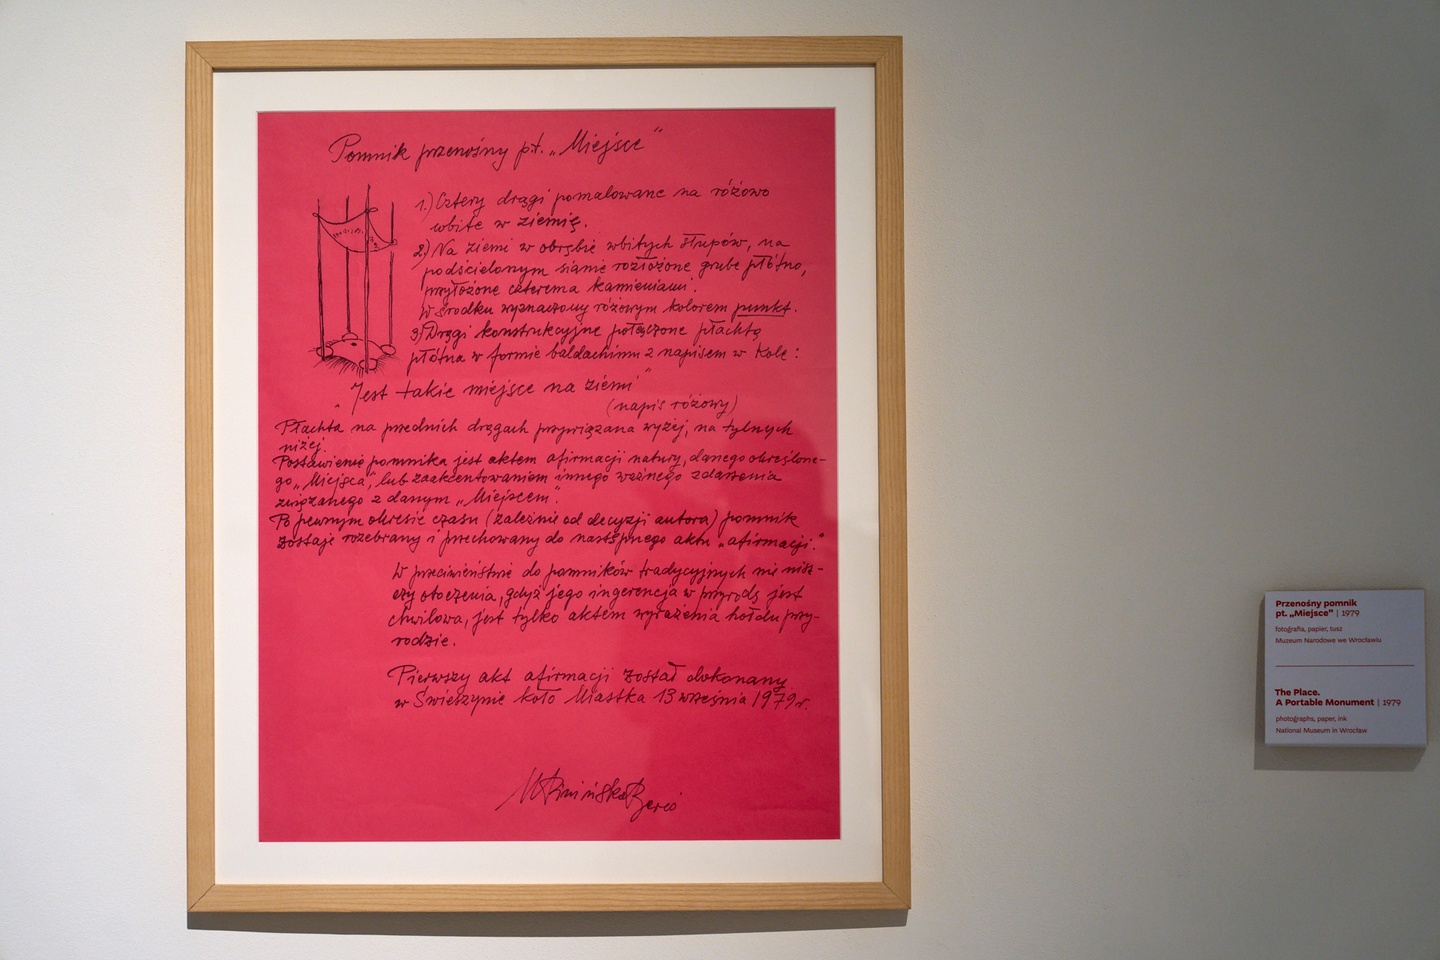 Pomnik przenośny pt. „Miejsce"
1.) Cztery drągi pomalowane na różowo
wbite w ziemię.
2.) Na ziemi w obrębie wbitych słupów, na
podścielonym sianie rozłożone grube płótno,
przyłożone czterema kamieniami.
W środku wyznaczony różowym kolorem punkt.
3) Drągi konstrukcyjne połączone płachtą
płótna w formie baldachimu z napisem w kole:
„Jest takie miejsce na ziemi"
(napis różowy)
Płachta na przednich drągach przywiązana wyżej, na tylnych
niżej.
Postawienie pomnika jest aktem afirmacji natury, danego określone-
go „Miejsca", lub zaakcentowaniem innego ważnego zdarzenia
związanego z danym „Miejscem".
Po pewnym okresie czasu (zależnie od decyzji autora) pomnik
zostaje rozebrany i przechowany do następnego aktu „afirmacji."
W przeciwieństwie do pomników tradycyjnych nie nisz-
czy otoczenia, gdyż jego ingerencja w przyrodę jest
chwilowa, jest tylko aktem wyrażenia hołdu przy-
rodzie.
Pierwszy akt afirmacji został dokonany
w Świeszynie koło Miastka 13 września 1979 r.
M Pinińska Bereś
Przenośny pomnik
pt. „Miejsce" | 1979
fotografia, papier, tusz
Muzeum Narodowe we Wrocławiu
The Place.
A Portable Monument | 1979
photographs, paper, ink
National Museum in Wrocław